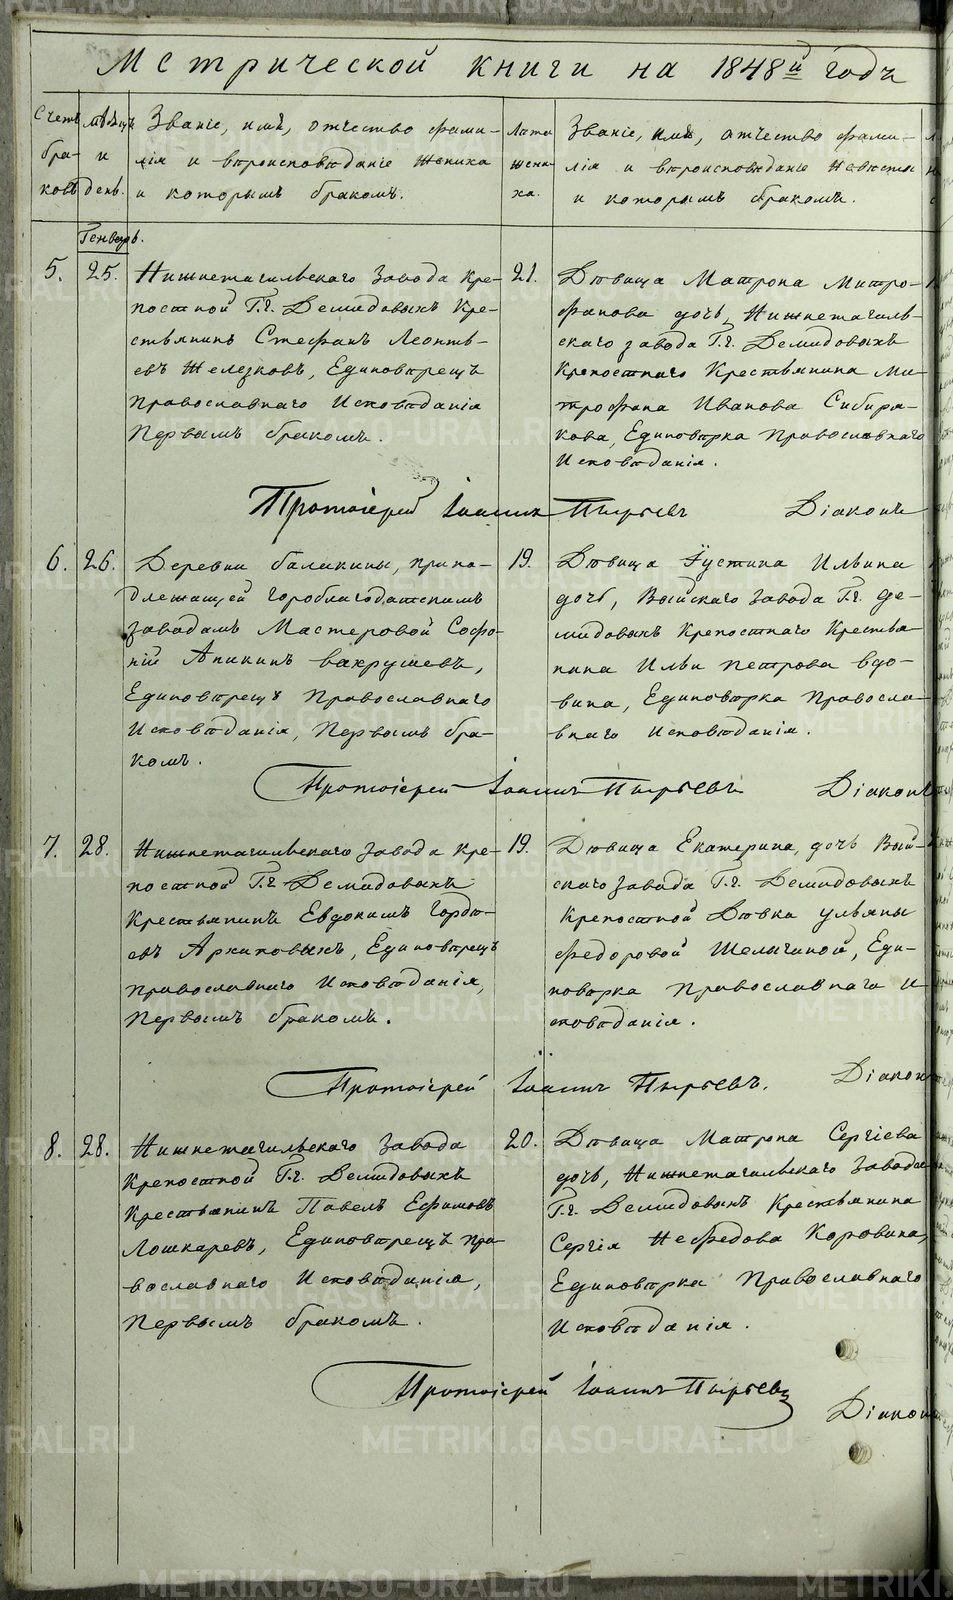 Метрической книги на 1848й годъ
Счетъ
бра-
ковъ
мѣсяцъ
и
день.
Званіе, имя, отчество фами-
лія и вѣроисповѣданіе Жениха
и которымъ бракомъ.
Лета
жени-
ха.
Званіе, имя, отчество фами-
лія и вѣроисповѣданіе Невѣсты
и которымъ бракомъ.
Генварь.
5. 25.
Нижнетагильскаго Завода Кре-
постной Г.г. Демидовыхъ Кре-
стьянинъ Стефанъ Леонть-
евъ Железковъ, Единовѣрецъ
Православнаго Исповѣданія
Первымъ бракомъ.
21.
Дѣвица Матрона Митро-
фанова дочь, Нижнетагиль-
скаго завода Г.г. Демидовыхъ
Крепостнаго Крестьянина Ми-
трофана Иванова Сибиря-
кова, Единовѣрка Православнаго
Исповѣданія.
Протоіерей Іоаннъ Пырьевъ Діаконъ
6. 26.
Деревни балакины, прина-
длежащей Гороблагодатскимъ
заводамъ Мастеровой Софо-
ній Аникинъ вахрушевъ,
Единовѣрецъ Православнаго
Исповѣданія, Первымъ бра-
комъ.
19.
Дѣвица Іустина Ильина
дочь, Выйскаго Завода Г.г. де-
мидовыхъ Крепостнаго Крестья
нина Ильи Петрова вдо-
вина, Единовѣрка Правосла-
внаго Исповѣданія.
Протоіерей Іоаннъ Пырьевъ Діаконъ
7. 28.
Нижнетагильскаго Завода Кре-
постной Г.г. Демидовыхъ
Крестьянинъ Евдокимъ Гордѣ-
евъ Архиповыхъ, Единовѣрецъ
православнаго Исповѣданія,
Первымъ бракомъ.
19.
Дѣвица Екатерина, дочь Вый-
скаго завода Г.г. Демидовыхъ
Крепостной Дѣвки ульяны
Федоровой Шелыгиной, Еди-
новѣрка Православнаго И-
сповѣданія.
Протоіерей Іоаннъ Пырьевъ. Діакон
8. 28.
Нижнетагильскаго Завода
Крепостной Г.г. Демидовыхъ
Крестьянинъ Павелъ Ефимовъ
Лошкаревъ, Единовѣрецъ Пра-
вославнаго Исповѣданія,
Первымъ бракомъ.
20.
Дѣвица Матрона Сергіева
дочь, Нижнетагильскаго Завода
Г.г. Демидовыхъ Крестьянина
Сергія Нефедова Коровина,
Единовѣрка Православнаго
Исповѣданія.
Протоіерей Іоаннъ Пырьевъ
Діакон
METRIKI.GASO-URAL.RU